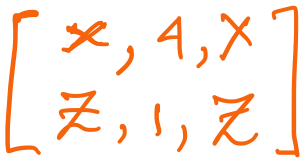 [x, 4, x
z, 1, z]